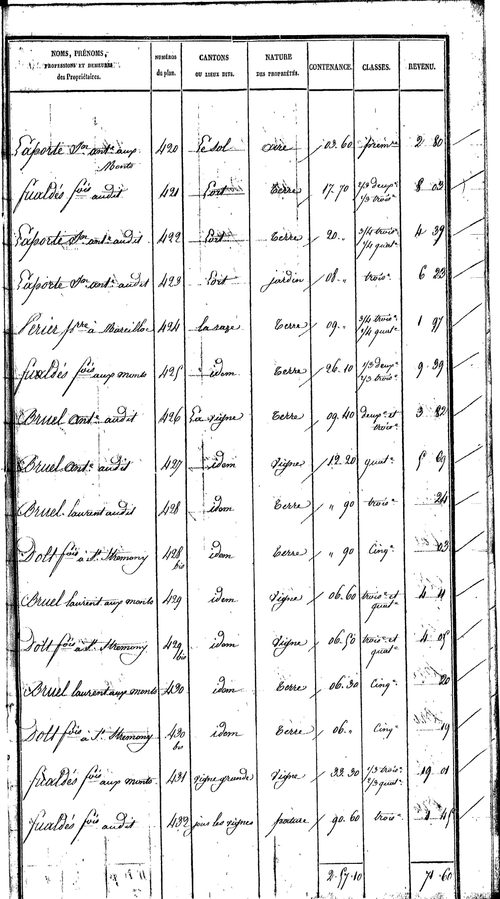 NOMS, PRÉNOMS, PROFESSIONS ET DEMEURES des Propriétaires. NUMÉROS du plan. CANTONS OU LIEUX DITS. NATURE DES PROPRIÉTÉS. CONTENANCE. CLASSES. REVENU.
Laporte Jn ante aux Monts 420 Le sol aire 03.60 premre 2 80
fualdés fois audit 421 Port terre 17.70 1/3 deuxe 2/3 trois 8 03
Laporte Jn ante audit 422 Port terre 20. " 3/4 trois 1/4 quat 4 39
Laporte Jn ante audet 423 Port jardin 08. " trois 6 23
Périer prre à Mareilloc 424 la raze terre 09. " 3/4 trois 1/4 quat 1 97
fualdés fois aux monts 425 idem terre 26.10 1/3 deux 2/3 trois 9 39
Bruel Ante audit 426 La vigne terre 09.40 deuxe et trois 3 82
Bruel ante audit 427 idem vigne 12.20 quate 5 69
Bruel laurent audit 428 idem terre " 90 trois 24
Dolt fois à St. Stremony 428 bis idem terre " 90 Cinqe 03
Bruel laurent aux monts 429 idem vigne 06.60 trois et quat 4 11
Dolt fois à St. Stremony 429 bis idem vigne 06.50 trois et quat 4 05
Bruel laurent aux monts 430 idem terre 06.30 Cinqe 20
Dolt fois à St. Stremony 430 bis idem terre 06. " Cinqe 19
fualdés fois aux monts 431 vigne grande vigne 33.30 1/3 trois 2/3 quat 19 01
fualdés fois audit 432 sous les vignes pature 90.60 trois 1 45
2.57.10 71.60